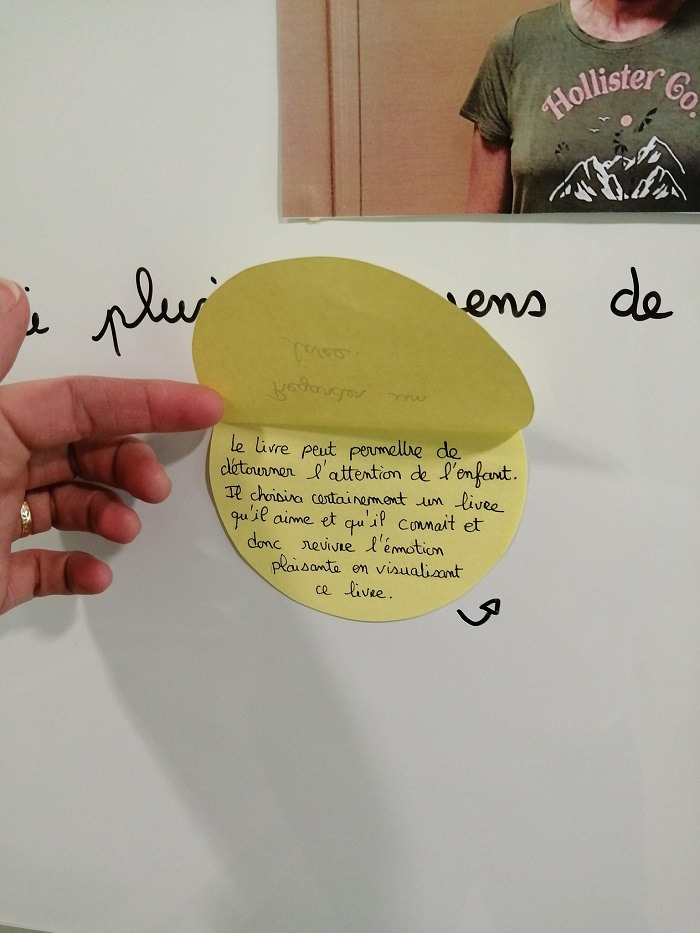 Hollister Co.
de
livre.
Regarder un
Le livre peut permettre de
détourner l'attention de l'enfant.
Il choisira certainement un livre
qu'il aime et qu'il connait et
donc revivre l'émotion
plaisante en visualisant
ce livre.